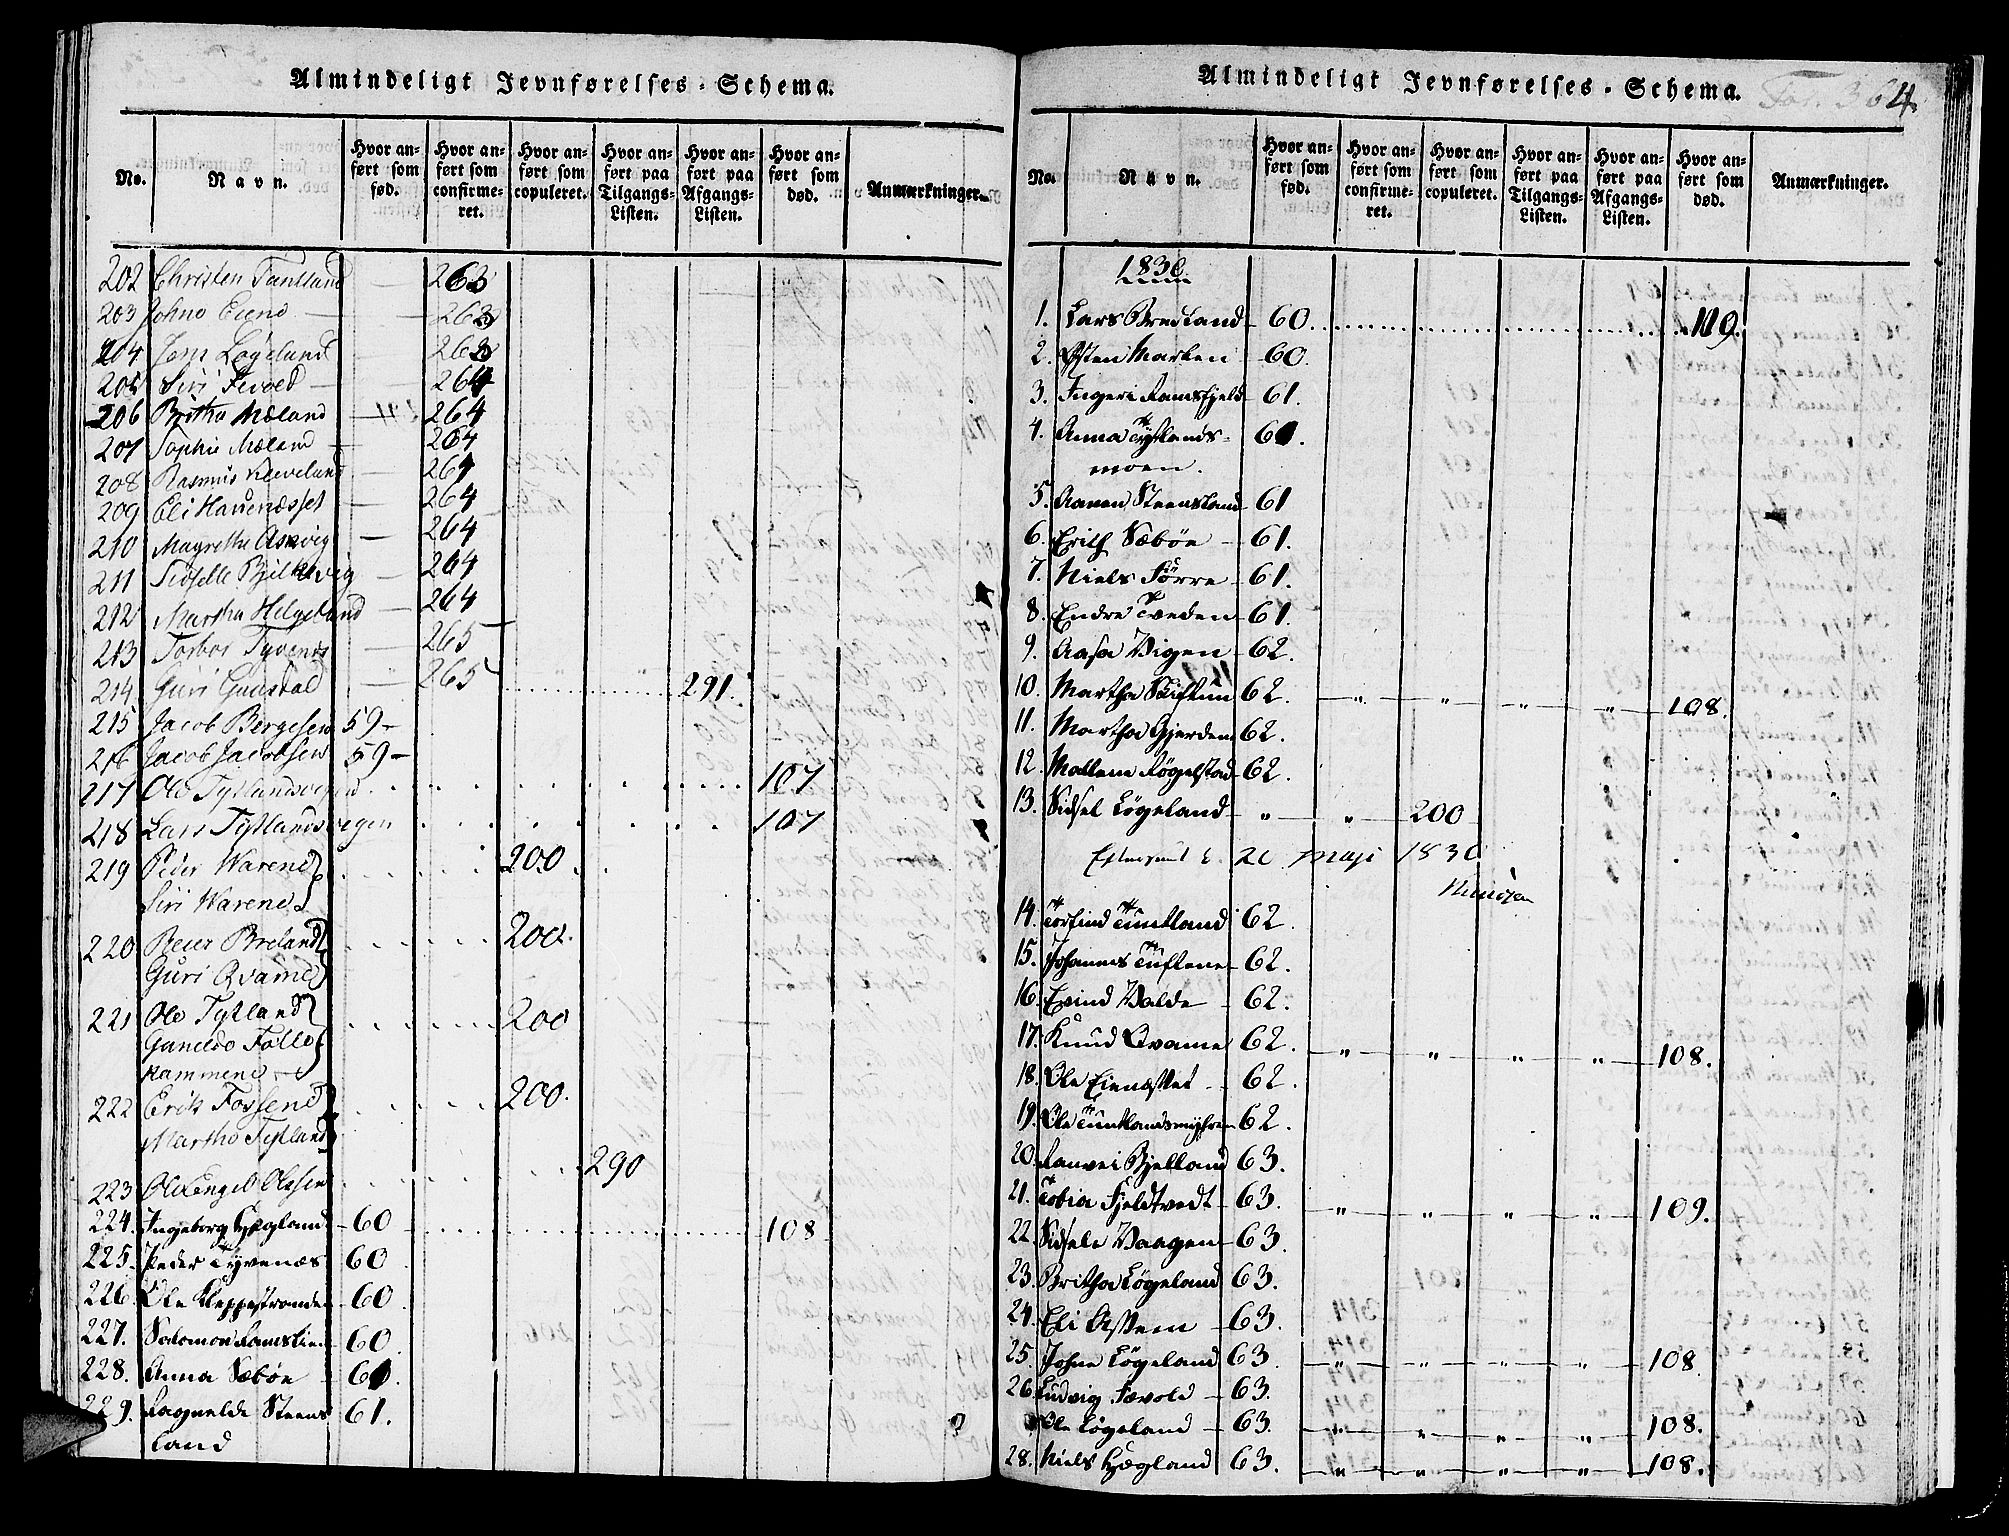 Almindeligt Jevnførelses-Schema.
No. Navn. Hvor anført som fød. Hvor anført som confirmeret. Hvor anført som copuleret. Hvor anført paa Tilgangs-Listen. Hvor anført paa Afgangs-Listen. Hvor anført som død. Anmærkninger.
202 Christen Tuntland — 263
203 Johno Eiene — 263
204 Løgeland 263
205 Siri — 264
206 Britha Mæland — 264
207 Sophie Mæland — 264
208 Rasmus Kleveland — 264
209 Eli Hauenæsset — 264
210 Magrethe Asevig — 264
211 Sidselle — 264
212 Martha Helgeland — 264
213 Torbor Tyvenes — 265
214 Guri — 265 291.
215 Jacob Bergesen 59-
216 Jacob Jacobsen 59-
217 Ole Tytlandsvegen 107
218 Lars Tytlandsvegen 107
219 Peder Warene 200.
Siri Warene
220 Peder Breland 200.
Guri Qvame
221 Ole Tytland 200
Guneldo Følle
kammene
222 Erik Fossene 200.
Martho Tytland
290
223 Ole Engel Olesen
224. Ingeborg Høgland - 60 108
225. Peder Tyvenæs 60
226. Ole Kleppestranden 60
227. Salomon Ramstien 60
228. Anna Sæbøe 60.
229. Ragnelde Steens 61.
land
Almindeligt Jevnførelses-Schema.
Fol. 364.
No. Navn. Hvor anført som fød. Hvor anført som confirmeret. Hvor anført som copuleret. Hvor anført paa Tilgangs-Listen. Hvor anført paa Afgangs-Listen. Hvor anført som død. Anmærkninger.
1830.
1. Lars Bredland - 60 119.
2. Østen Marken 60.
3. Ingeri Ramsfjeld 61.
4. Anna Tytlands- 61.
moen.
5. Aanen Steensland 61
6. Erik Sæbøe - 61.
7. Niels Førre - 61.
8. Endre Tveden 61.
9. Aasa Vigen - 62.
10. Martha Stiftun 62. — „ — „ „ „ — 108.
11. Martha Gjerden 62.
12. Mallene Føgelstad 62.
13. Sidsel Løgeland — „ — „ — 200
20 Maji 1830
14. Torfind Tuntland 62.
15. Johannes Tuftene 62.
16. Evind Valde - 62.
17. Knud Qvame 62. — „ — „ — „ — „ — 108.
18. Ole Eienæsset - 62.
19. Ole Tuntlandsmyhren 62.
20. Ranvei Bjelland 63.
21. Tobia Fjeldtvedt - 63. — „ — „ — „ — „ — 109.
22. Sidsele Vaagen 63.
23. Britha Løgeland 63.
24. Eli Østem - 63.
25. Johne Løgeland 63. — „ — „ „ „ — 108
26. Ludvig Fævold - 63.
Ole Løgeland - 63. — „ — „ „ „ — 108.
28. Niels Høgland 63. — „ — „ „ „ — 108.